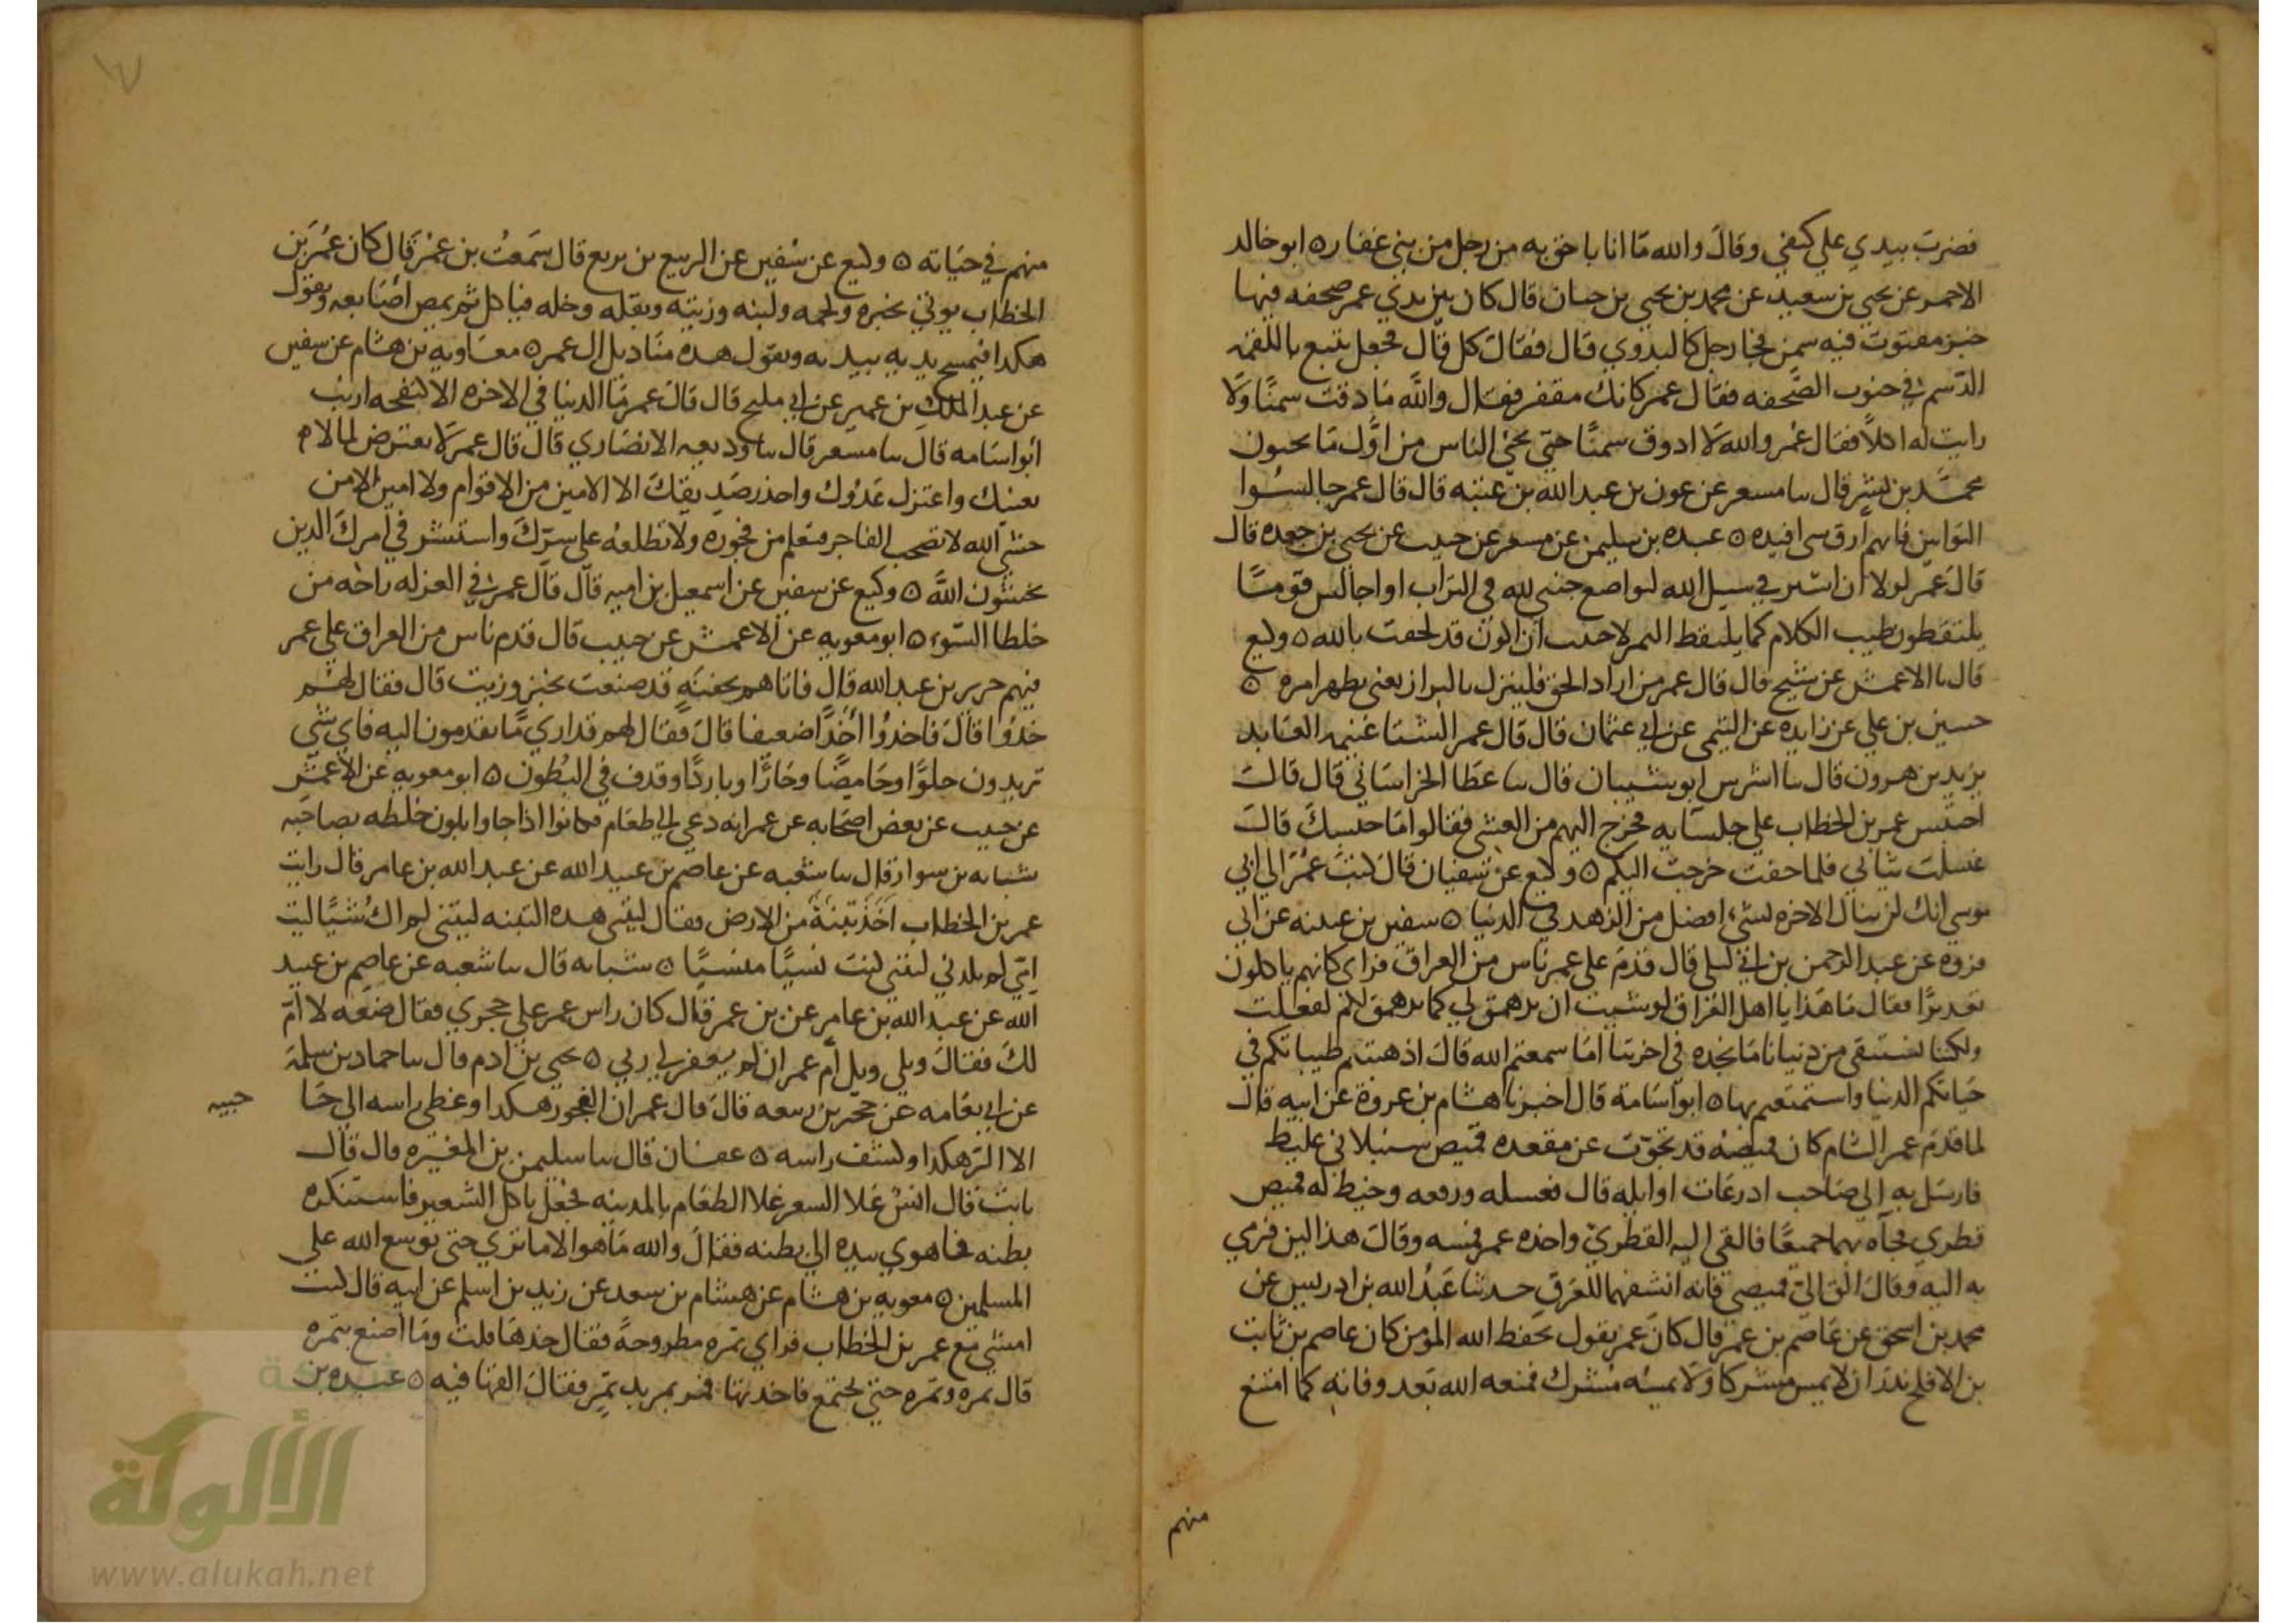 فضرب بيدي علي كتفي وقال والله ما انا باحق به من رجل من بني غفار ه ابو خالد
الاحمر عن يحيي بن سعيد عن محمد بن يحيي بن حبان قال كان بين يدي عمر صحفه فيها
خبز مفتوت فيه سمن فجا رجل كالبدوي قال فقال كل قال فجعل يتبع باللقمه
الدسم في جنوب الصحفه فقال عمر كانك مقفر فقال والله ما دقت سمنا ولا
رايت له اكلا فقال عمر والله لا ادوق سمنا حتي يحيي الناس من اول ما يحيون
محمد بن بشر قال سا مسعر عن عون بن عبد الله بن عتبه قال قال عمر جالسوا
التوابين فانهم ارق سي افيده ه عبده بن سليمن عن مسعر عن حبيب عن يحيي بن جعده قال
قال عمر لولا ان اسير في سبيل الله او اضع جنبي لله في التراب او اجالس قوما
يلتقطون طيب الكلام كما يلتقط التمر لاحببت ان اكون قد لحقت بالله ه وكيع
قال سا الاعمش عن شيخ قال قال عمر من اراد الحق فلينزل بالبراز يعني يظهر امره ه
حسين بن علي عن زايده عن التيمي عن ابي عثمان قال قال عمر الشتا غنيمه العابد
يزيد بن هرون قال سا اشرس ابو شيبان قال سا عطا الخراساني قال قال
احتبس عمر بن الخطاب علي جلسايه فخرج اليهم من العشي فقالوا ما حبسك قال
غسلت ثيابي فلما جفت خرجت اليكم ه وكيع عن سفيان قال كتب عمر الي ابي
موسي انك لن تنال الاخره بشيء افضل من الزهد في الدنيا ه سفين بن عيينه عن ابي
فروه عن عبد الرحمن بن ابي ليلي قال قدم علي عمر ناس من العراق فراي كانهم ياكلون
تعديرا فقال ما هذا يا اهل العراق لو شيت ان يدهمق لي كما يدهمق لكم لفعلت
ولكنا نستبقي من دنيانا ما نجده في اخرتنا اما سمعتم الله قال اذهبتم طيباتكم في
حياتكم الدنيا واستمتعتم بها ه ابو اسامة قال اخبرنا هشام بن عروة عن ابيه قال
لما قدم عمر الشام كان قميصه قد تجوب عن مقعده قميص سنبلاني غليظ
فارسل به الي صاحب ادرعات او ايله قال فغسله ورقعه وخيط له قميص
قطري فجاه بهما جميعا فالقي اليه القطري واخذه عمر فمسه وقال هذا لين فرمي
به اليه وقال الق الي قميصي فانه انشفهما للعرق حدثنا عبد الله بن ادريس عن
محمد بن اسحق عن عاصم بن عمر قال كان عمر يقول يحفظ الله المؤمن كان عاصم بن ثابت
بن الافلح نذر ان لا يمس مشركا ولا يمسه مشرك فمنعه الله بعد وفاته كما امتنع
منهم
منهم في حياته ه وكيع عن سفين عن الربيع بن بريع قال سمعت بن عمر قال كان عمر بن
الخطاب يوتي بخبزه ولحمه ولبنه وزيته وبقله وخله فياكل ثم يمص اصابعه ويقول
هكدا فيمسح يديه بيديه ويقول هده مناديل ال عمر ه معاويه بن هشام عن سفين
عن عبد الملك بن عمير عن ابي مليح قال قال عمر ما الدنيا في الاخره الا كنفجه ارنب
ابو اسامه قال سا مسعر قال سا وديعه الانصاري قال قال عمر لا يعترض لما لا
يعنيك واعتزل عدوك واحذر صديقك الا الامين من الاقوام ولا امين الا من
خشي الله لا تصحب الفاجر فتعلم من فجوره ولا تطلعه علي سرك واستشر في امرك الدين
يخشون الله ه وكيع عن سفين عن اسمعيل بن اميه قال قال عمر في العزله راحه من
خلطا السوء ه ابو معويه عن الاعمش عن حبيب قال قدم ناس من العراق علي عمر
فيهم جرير بن عبد الله قال فاتاهم بجفنه قد صنعت بخبز وزيت قال فقال لهم
خدوا قال فاخدوا اخدا ضعيفا قال فقال لهم قد اري ما تقدمون اليه فاي شي
تريدون حلوا وحامضا وحارا وباردا وقدف في البطون ه ابو معويه عن الاعمش
عن حبيب عن بعض اصحابه عن عمر انه دعي الي طعام فكانوا اذا جاوا بلون خلطه بصاحبه
شبابه بن سوار قال سا شعبه عن عاصم بن عبيد الله عن عبد الله بن عامر قال رايت
عمر بن الخطاب اخذ تبنة من الارض فقال ليتني هده التبنه ليتني لم اك شيا ليت
امي لم تلدني ليتني كنت نسيا منسيا ه شبابه قال سا شعبه عن عاصم بن عبيد
الله عن عبد الله بن عامر عن بن عمر قال كان راس عمر علي حجري فقال ضعه لا ام
لك فقال ويلي ويل ام عمر ان لم يغفر لي ربي ه يحيي بن ادم قال سا حماد بن سلمه
عن ابي نعامه عن حجير بن ربيعه قال قال عمر ان الفجور هكدا وغطي راسه الي حا
جبيه
الا ان البر هكدا وكشف راسه ه عفان قال سا سليمن بن المغيره قال قال
ثابت قال انس غلا السعر غلا الطعام بالمدينه فجعل ياكل الشعير فاستنكره
بطنه فاهوي بيده الي بطنه فقال والله ما هو الا ما تري حتي يوسع الله علي
المسلمين ه معويه بن هشام عن هشام بن سعد عن زيد بن اسلم عن ابيه قال كنت
امشي مع عمر بن الخطاب فراي تمره مطروحة فقال خدها قلت وما اصنع بتمره
قال تمره وتمره حتي تجتمع فاخدتها فمر بمربد تمر فقال القها فيه ه عبده بن
الألوكة
www.alukah.net